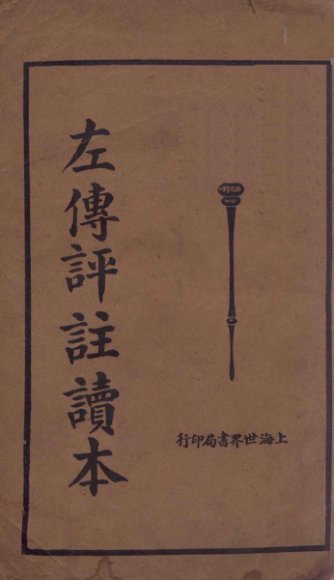 左傳評註讀本
上海世界書局印行